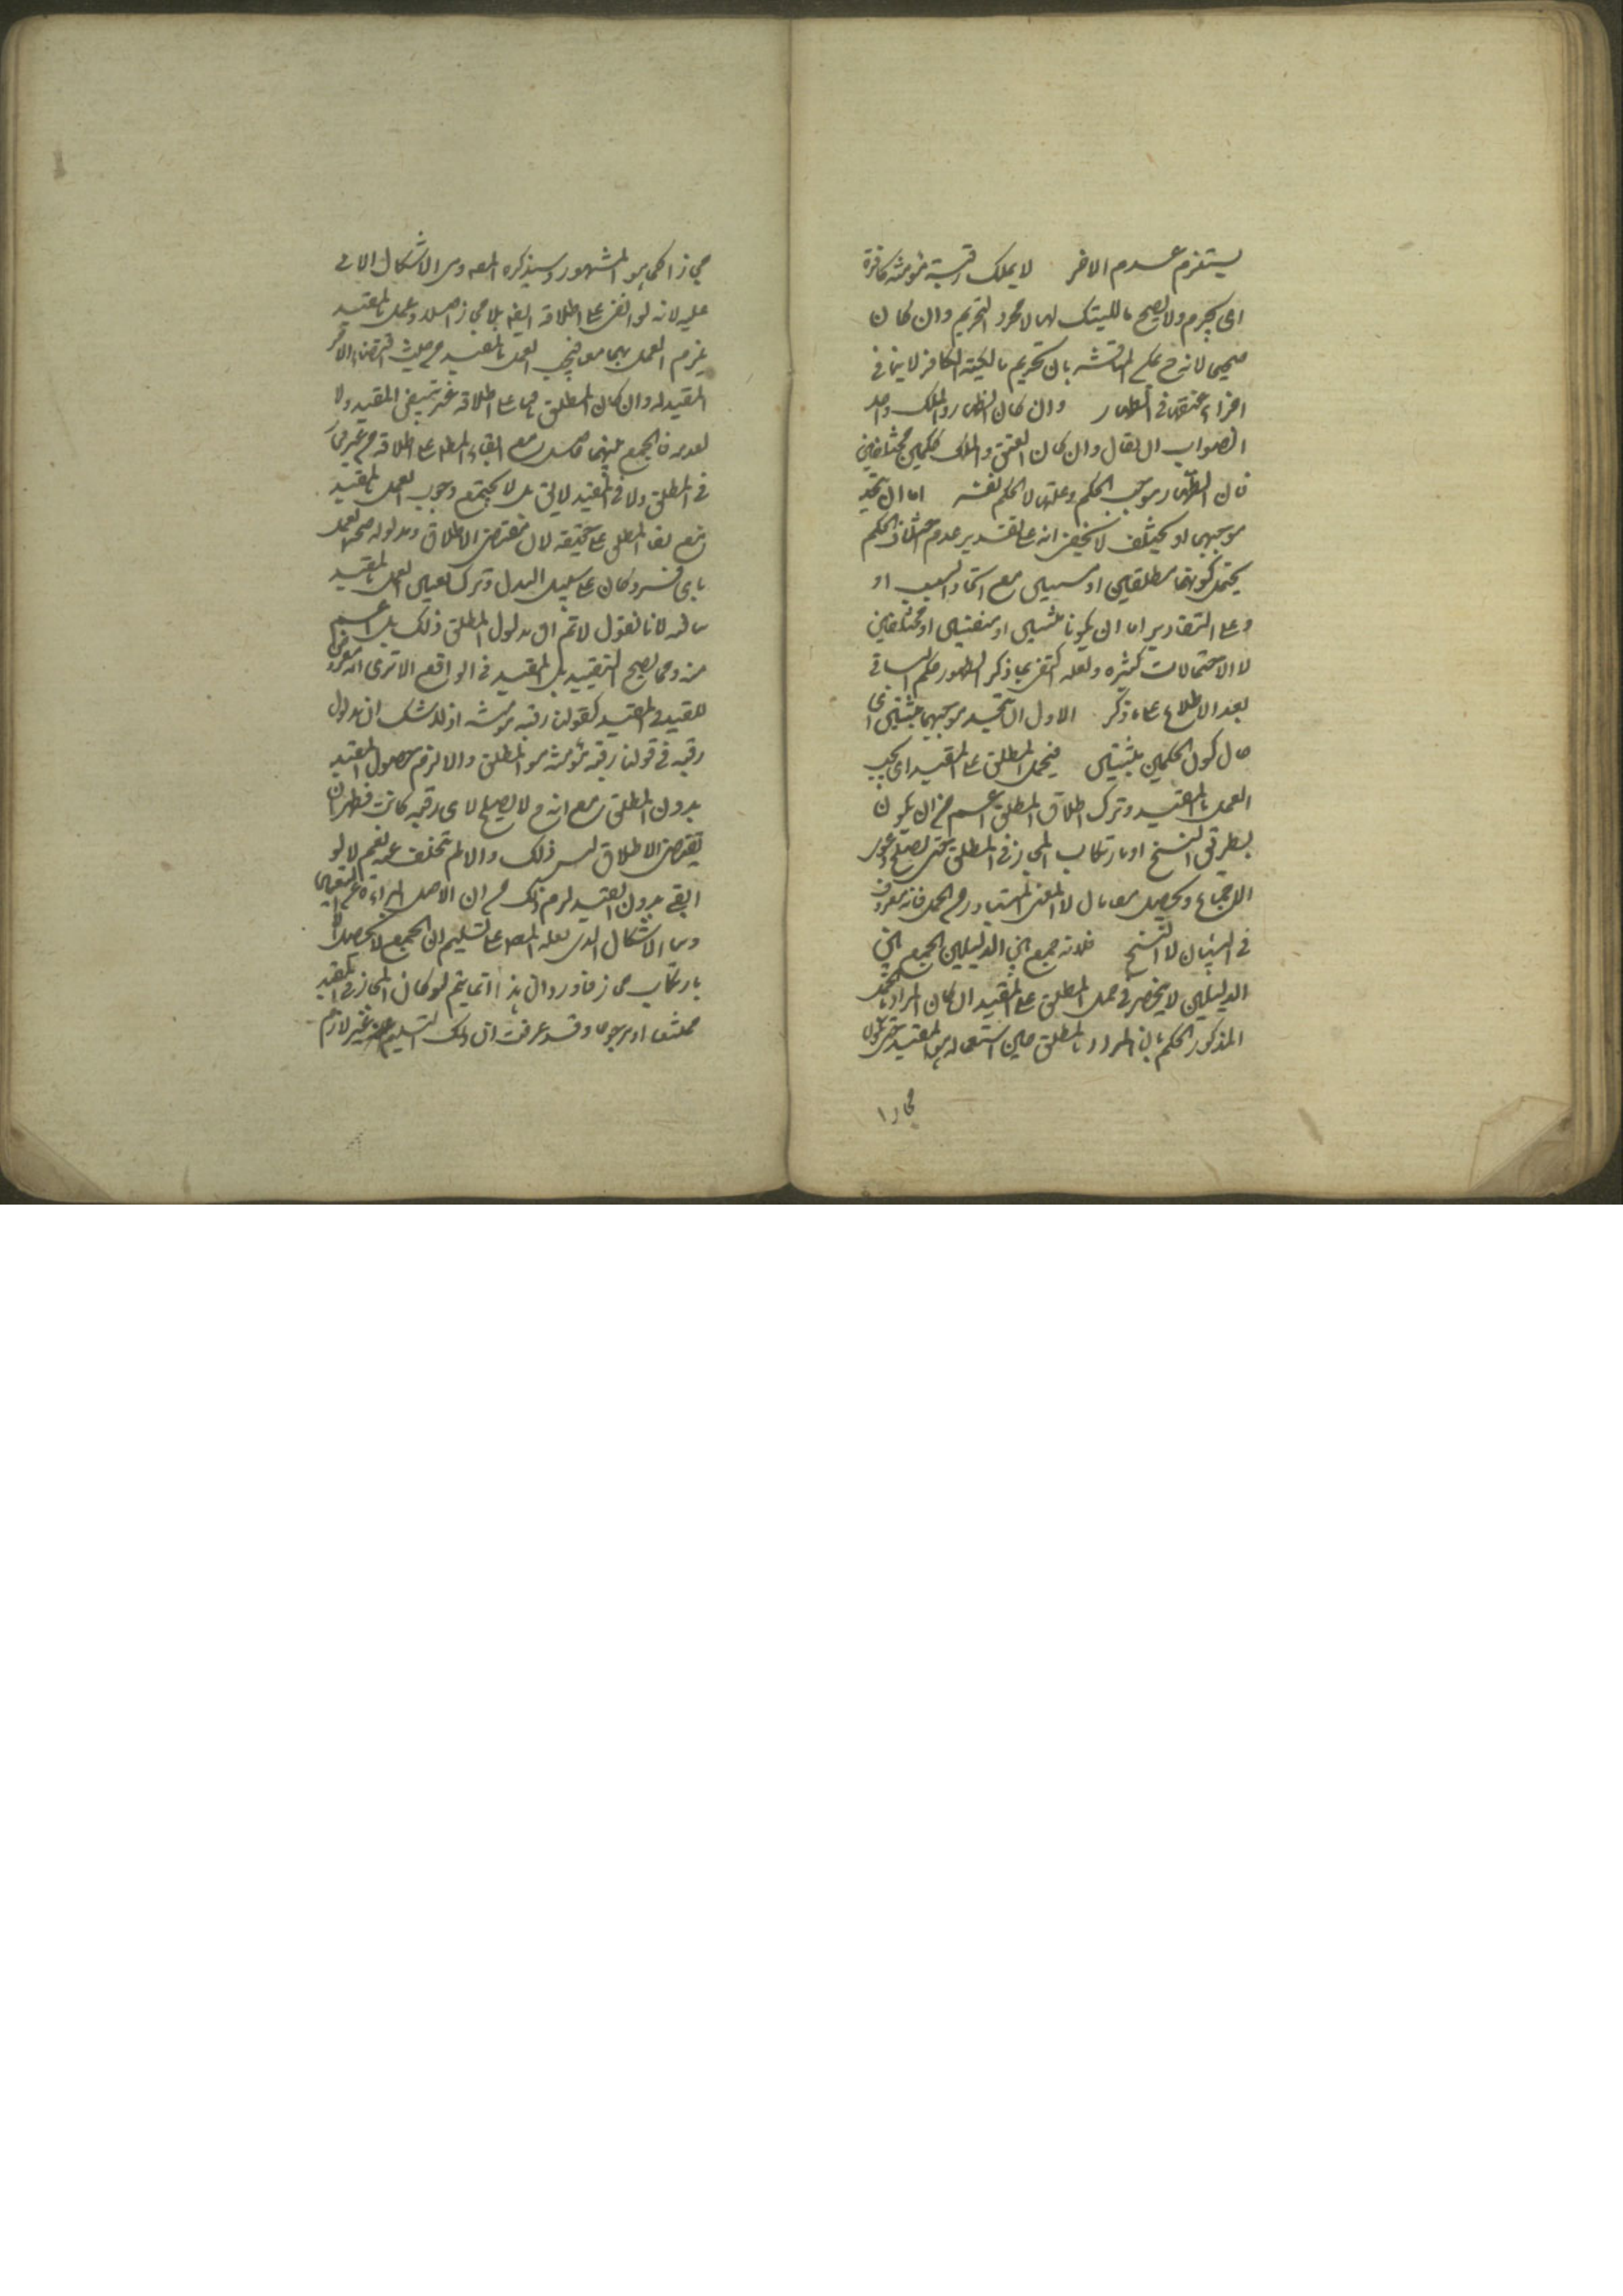 يستلزم عدم الاخر لا يملك رقبة مؤمنة كافرة
اى يحرم ولا يصح مالكيتك لها لا مجرد التحريم وان كان
صحيحا لانه ح يمكن المناقشة بان تحريم مالكية الكافر لا ينافى
اجزاء عتقها فى الظهار وان كان الظهار والملك واحد
الصواب ان يقال وان كان العتق والملك حكمين مختلفين
فان الظهار موجب الحكم وعلته لا الحكم نفسه اما ان يتحد
موجبهما او يختلف لا يخفى انه على تقدير عدم اختلاف الحكم
يحتمل كونهما مطلقين او مع اتحاد السبب او
وعلى التقادير اما ان يكونا مثبتين او منفيين او مختلفين
الاحتمالات كثيره ولعله اكتفى بما ذكر لظهور حكم الباقى
بعد الاطلاع على ما ذكر الاول ان يتحد موجبهما مثبتين اى
حال كون الحكمين مثبتين فيحمل المطلق على المقيد اى يجب
العمل بالمقيد وترك اطلاق المطلق اعم من ان يكون
بطريق النسخ او بارتكاب المجاز فى المطلق حتى يصح دعوى
الاجماع ويحصل لا المعنى المتبادر من الحمل فانه معروف
فى البيان لا النسخ فلانه جمع بين الدليلين الجمع بين
الدليلين لا ينحصر فى حمل المطلق على المقيد ان كان المراد بالحمل
المذكور الحكم بان المراد بالمطلق حين استعماله هو المقيد حتى يكون
مجازا
مجازا كما هو المشهور وسيذكره المصه ومن الاشكال الاتى
عليه لانه لو ابقى على اطلاقه ايضا بلا مجاز اصلا وعمل بالمقيد
يلزم العمل بهما معا فيجب العمل بالمقيد من حيث اقتضاء الامر
المقيد له وان كان المطلق باقيا على اطلاقه غير مقتض المقيد ولا
لعدمه فالجمع بينهما حاصل مع ابقاء المطلق على اطلاقه من غير مجاز
فى المطلق ولا فى المقيد لا يق بل لا يجتمع وجوب العمل بالمقيد
مع بقاء المطلق على حقيقته لان مقتضى الاطلاق ومدلوله صحة العمل
باى فرد كان على سبيل البدل وترك تعيين العمل بالمقيد
لانا نقول لا نم ان مدلول المطلق ذلك بل اعم
منه ومما يصح للتقييد بل المقيد فى الواقع الا ترى انه معروض
للقيد فى المقيد كقولنا رقبة مؤمنة اذ لا شك ان مدلول
رقبة فى قولنا رقبة مؤمنة هو المطلق والا لزم حصول المقيد
بدون المطلق مع انه ح لا يصلح لاى رقبة كانت فظهر ان
مقتضى الاطلاق ليس ذلك والا لم يتخلف عنه نعم لو
ابقى بدون التقييد لزم ذلك من ان الاصل البراءة عن التعيين
وبما الاشكال الذى نقله المصه على تسليم ان الجمع لا يحصل الا
بارتكاب مجاز فاورد ان هذا انما يتم لو كان المجاز فى المقيد
ممتنعا او مرجوحا وقد عرفت ان ذلك التسليم غير لازم